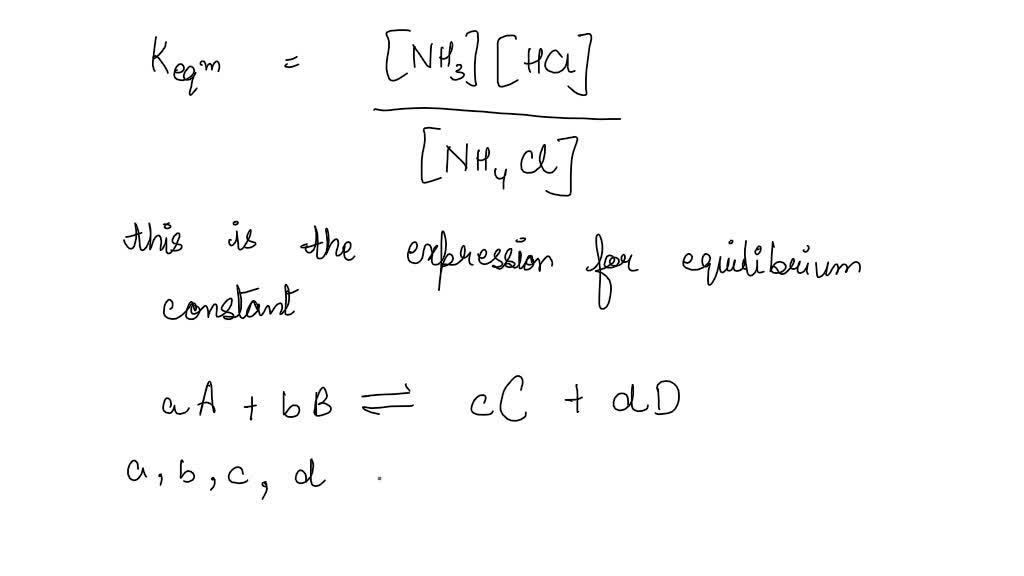 Keqm = [NH3] [HCl]
[NH4 Cl]
this is the expression for equilibrium
constant
aA + bB ⇌ cC + dD
a, b, c, d